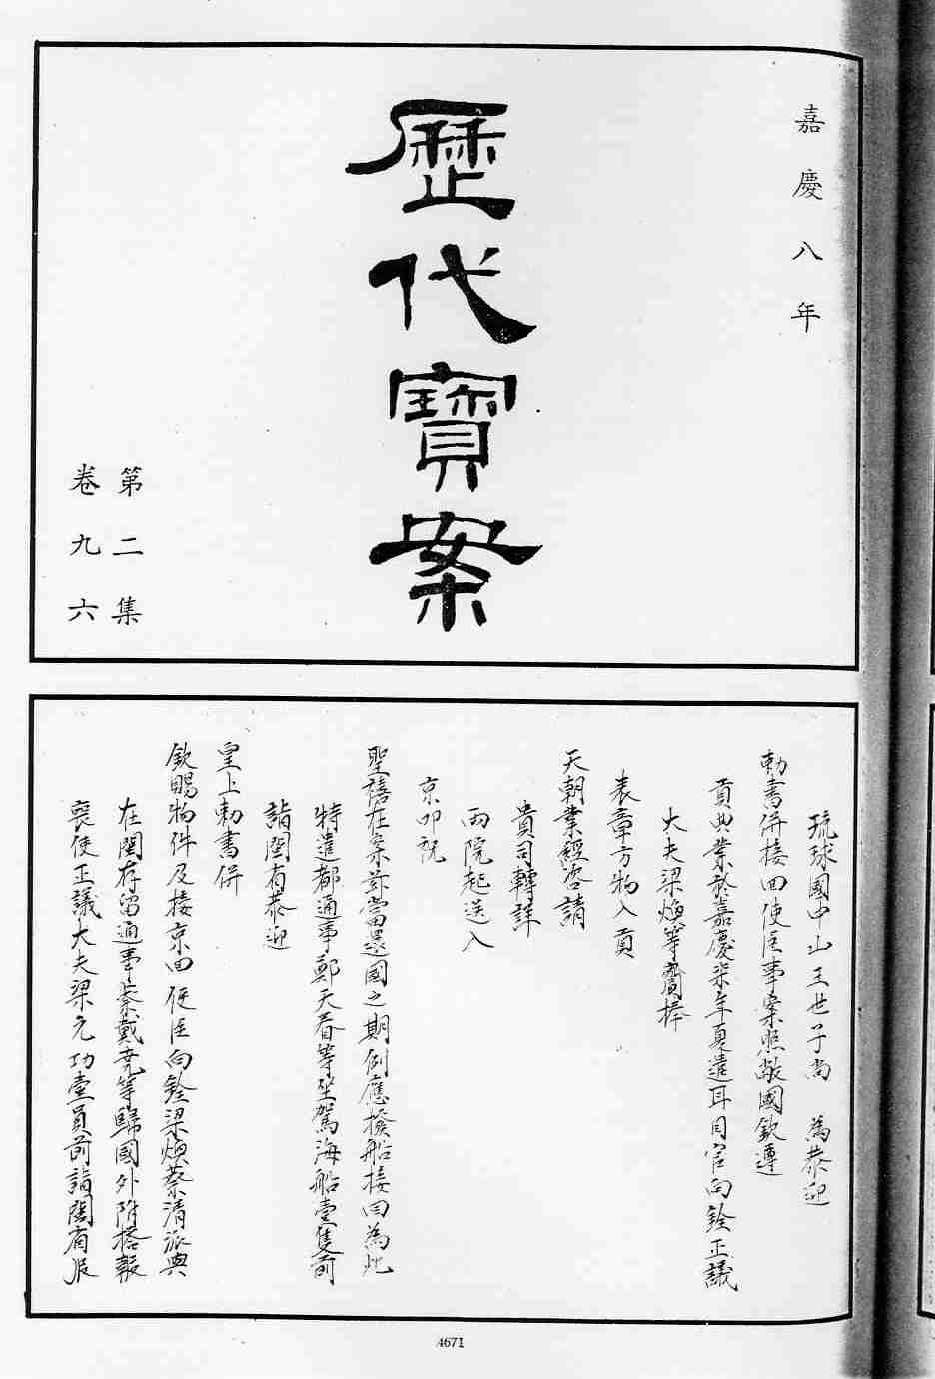 嘉慶八年
歷代寶案
第二集
卷九六
琉球國中山王世子尚　為恭迎
勅書併接回使臣事案照敝國欽遵
貢典業於嘉慶柒年夏遣耳目官向銓正議
大夫梁煥等齎捧
表章方物入貢
天朝業經咨請
貴司轉詳
兩院起送入
京叩祝
聖禧在案茲當還國之期例應撥船接回為此
特遣都通事鄭天眷等坐駕海船壹隻前
詣閩省恭迎
皇上勅書併
欽賜物件及接京回使臣向銓梁煥蔡清派與
在閩存留通事蔡戴堯等歸國外附搭報
喪使正議大夫梁元功壹員前詣閩省報
4671